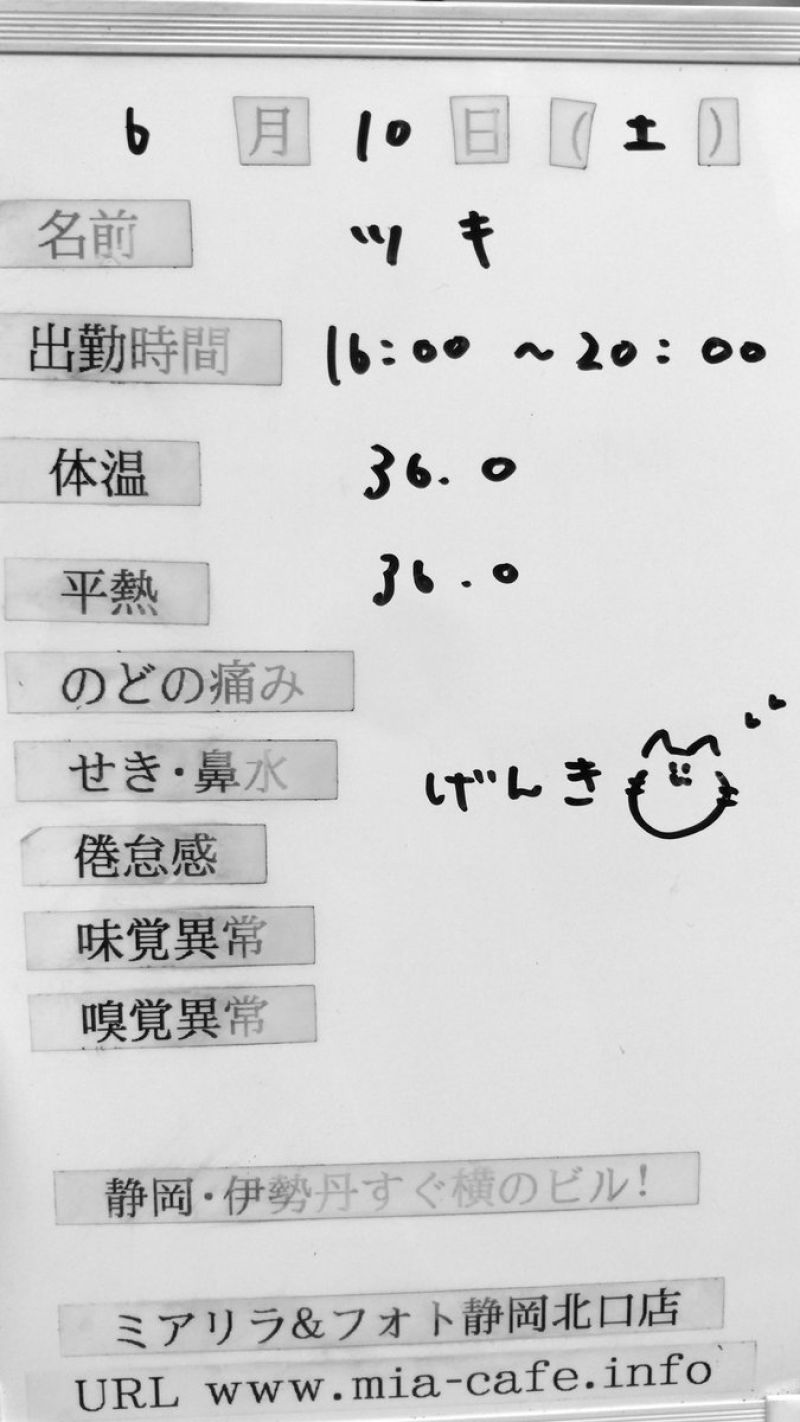 6月10日(土)
名前 ツキ
出勤時間 16:00~20:00
体温 36.0
平熱 36.0
のどの痛み
せき・鼻水 げんき
倦怠感
味覚異常
嗅覚異常
静岡・伊勢丹すぐ横のビル!
ミアリラ&フォト静岡北口店
URL www.mia-cafe.info